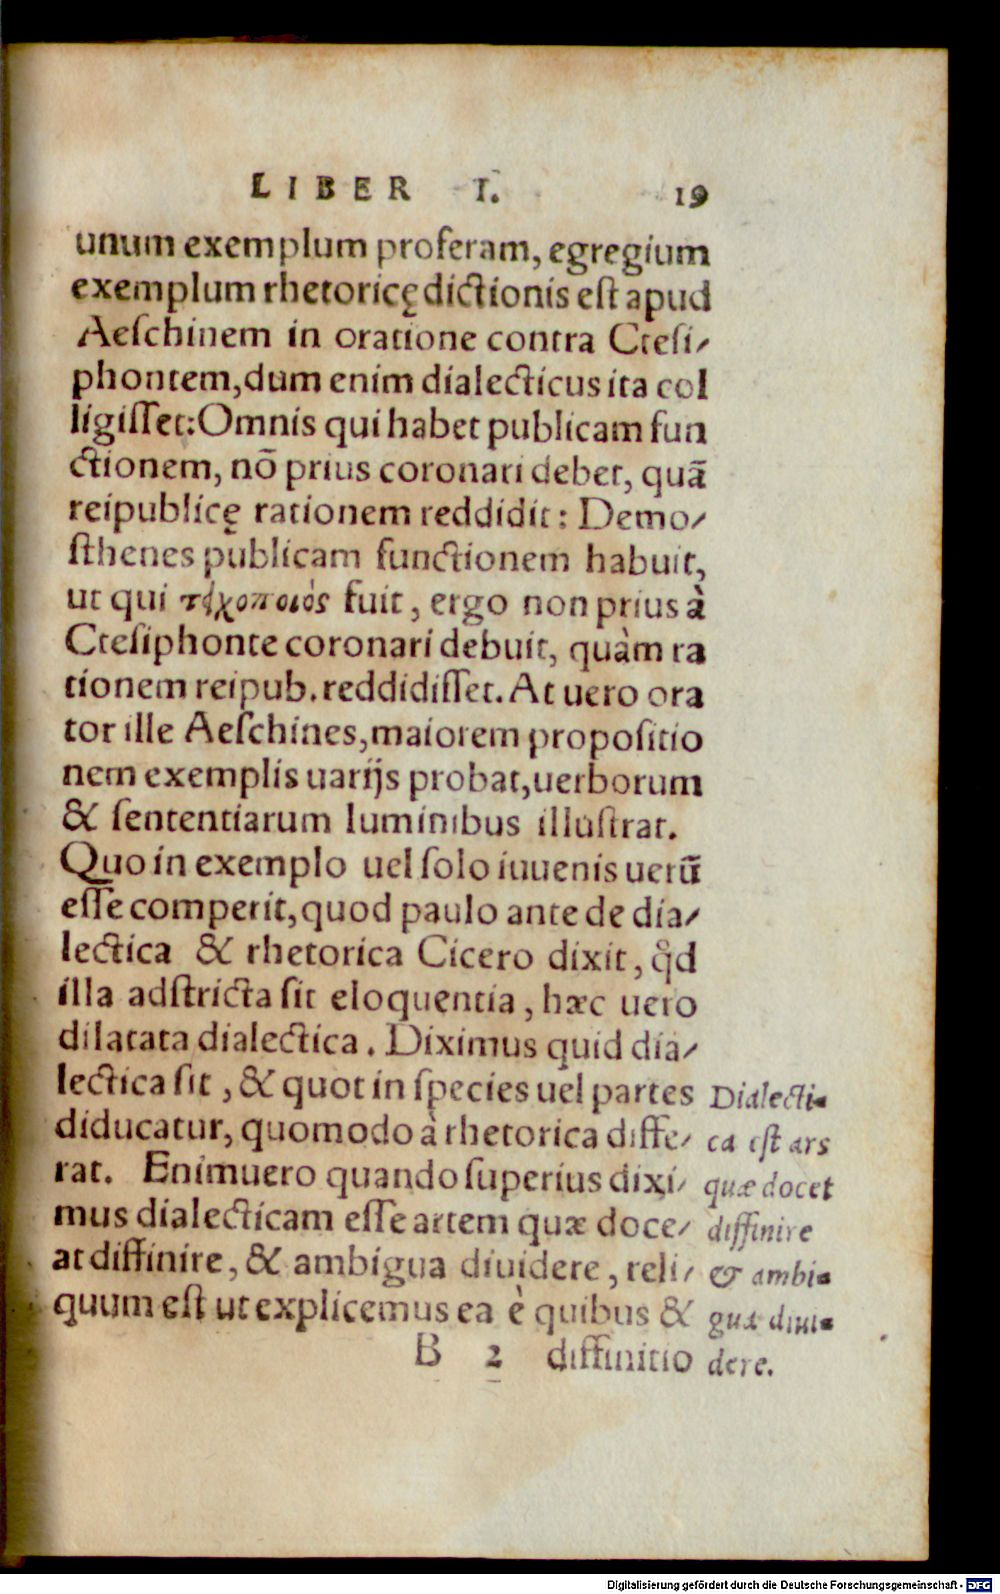 LIBER I. 19
unum exemplum proferam, egregium
exemplum rhetoricę dictionis est apud
Aeschinem in oratione contra Ctesi-
phontem, dum enim dialecticus ita col
ligisset: Omnis qui habet publicam fun
ctionem, nō prius coronari debet, quā
reipublicę rationem reddidit: Demo-
sthenes publicam functionem habuit,
ut qui τειχοποιὸς fuit, ergo non prius à
Ctesiphonte coronari debuit, quàm ra
tionem reipub. reddidisset. At uero ora
tor ille Aeschines, maiorem propositio
nem exemplis uarijs probat, uerborum
& sententiarum luminibus illustrat.
Quo in exemplo uel solo iuuenis uerū
esse comperit, quod paulo ante de dia-
lectica & rhetorica Cicero dixit, qd
illa adstricta sit eloquentia, hæc uero
dilatata dialectica. Diximus quid dia-
lectica sit, & quot in species uel partes
diducatur, quomodo à rhetorica diffe-
rat. Enimuero quando superius dixi-
mus dialecticam esse artem quæ doce-
at diffinire, & ambigua diuidere, reli-
quum est ut explicemus ea è quibus &
B 2 diffinitio
Dialecti-
ca est ars
quæ docet
diffinire
& ambi-
gua diui-
dere.
Digitalisierung gefördert durch die Deutsche Forschungsgemeinschaft - DFG